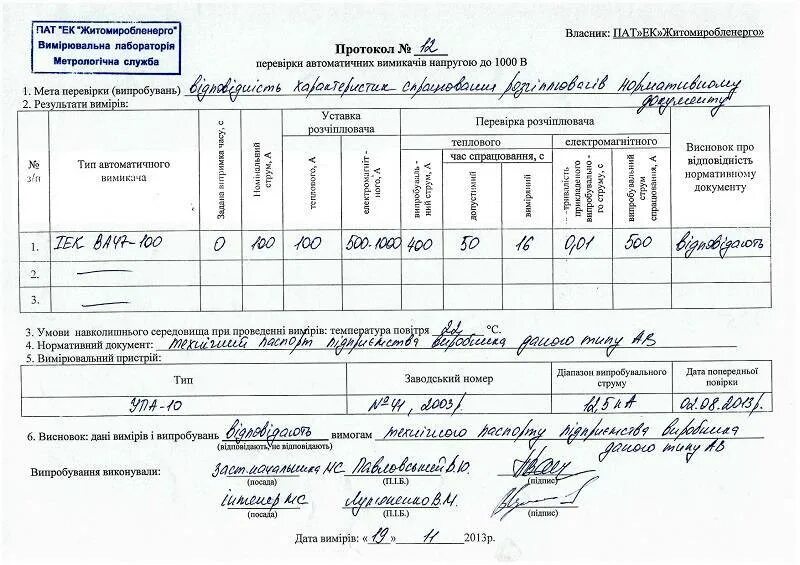 ПАТ "ЕК "Житомиробленерго"
Вимірювальна лабораторія
Метрологічна служба
Власник: ПАТ»ЕК»Житомиробленерго»
Протокол № 12
перевірки автоматичних вимикачів напругою до 1000 В
1. Мета перевірки (випробувань) відповідність характеристик спрацювання розчіплювачів нормативному
документу
2. Результати вимірів:
№ з/п
Тип автоматичного вимикача
Задана витримка часу, с
Номінальний струм, А
Уставка розчіплювача
теплового, А
електромагніт-ного, А
Перевірка розчіплювача
теплового
випробуваль-ний струм, А
час спрацювання, с
допустимий
виміряний
електромагнітного
тривалість прикладеного випробувально-го струму, с
випробувальний струм спрацювання, А
Висновок про відповідність нормативному документу
1. ІЕК ВА47-100 0 100 100 500-1000 400 50 16 0,01 500 відповідають
2. —
3. —
3. Умови навколишнього середовища при проведенні вимірів: температура повітря 22 °С.
4. Нормативний документ: технічний паспорт підприємства виробника даного типу АВ
5. Вимірювальний пристрій:
Тип Заводський номер Діапазон випробувального струму Дата попередньої повірки
УПА-10 №41, 2003р. 12,5 кА 02.08.2013р.
6. Висновок: дані вимірів і випробувань відповідають вимогам технічного паспорту підприємства виробника
(відповідають, не відповідають)
даного типу АВ
Випробування виконували: Заст.начальника МС Павловський В.Ю.
(посада) (П.І.Б.) (підпис)
інженер МС В.М.
(посада) (П.І.Б.) (підпис)
Дата вимірів: «19» 11 2013р.